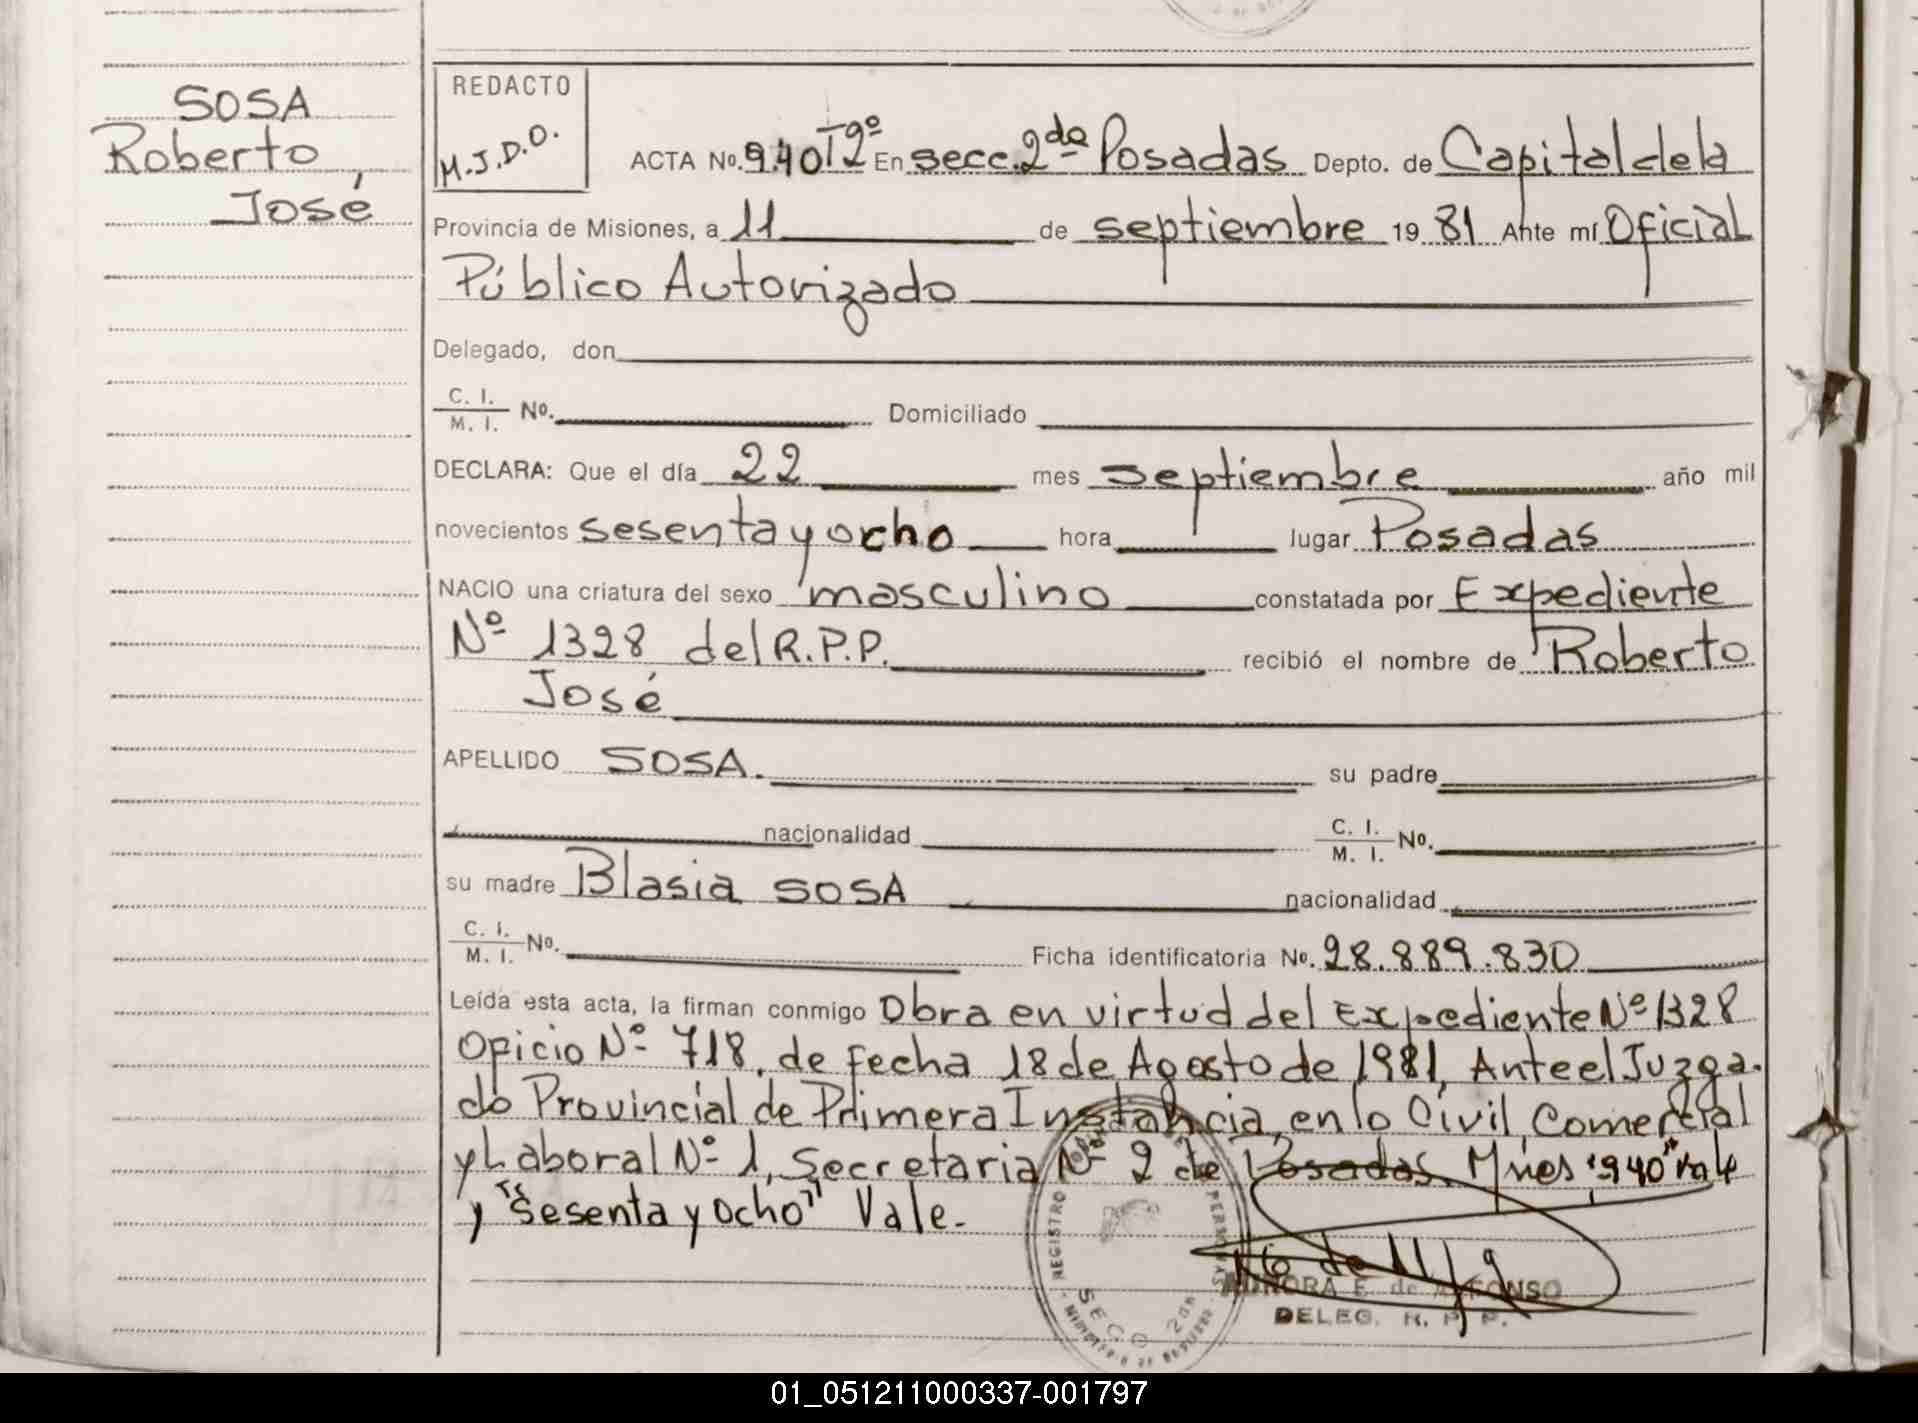 SOSA
Roberto
José
REDACTO
M.J.D.O.
ACTA No. 940 Tº 9º En secc. 2da Posadas Depto. de Capital de la
Provincia de Misiones, a 11 de septiembre 19 81 Ante mí Oficial
Público Autorizado
Delegado, don
C. I. / M. I. No. Domiciliado
DECLARA: Que el día 22 mes septiembre año mil
novecientos sesenta y ocho hora lugar Posadas
NACIO una criatura del sexo masculino constatada por Expediente
Nº 1328 del R.P.P. recibió el nombre de Roberto
José
APELLIDO SOSA. su padre
nacionalidad C. I. / M. I. No.
su madre Blasia SOSA nacionalidad
C. I. / M. I. No. Ficha identificatoria No. 28.889.830
Leída esta acta, la firman conmigo Obra en virtud del Expediente Nº 1328
Oficio Nº 718, de fecha 18 de Agosto de 1981, Ante el Juzga-
do Provincial de Primera Instancia, en lo Civil, Comercial
y Laboral Nº 1, Secretaria Nº 2 de Posadas Mnes, "940" Vale
y "Sesenta y Ocho" Vale.
REGISTRO
SECC 2DA
AURORA E. de ALFONSO
DELEG. R. P. P.
01_051211000337-001797